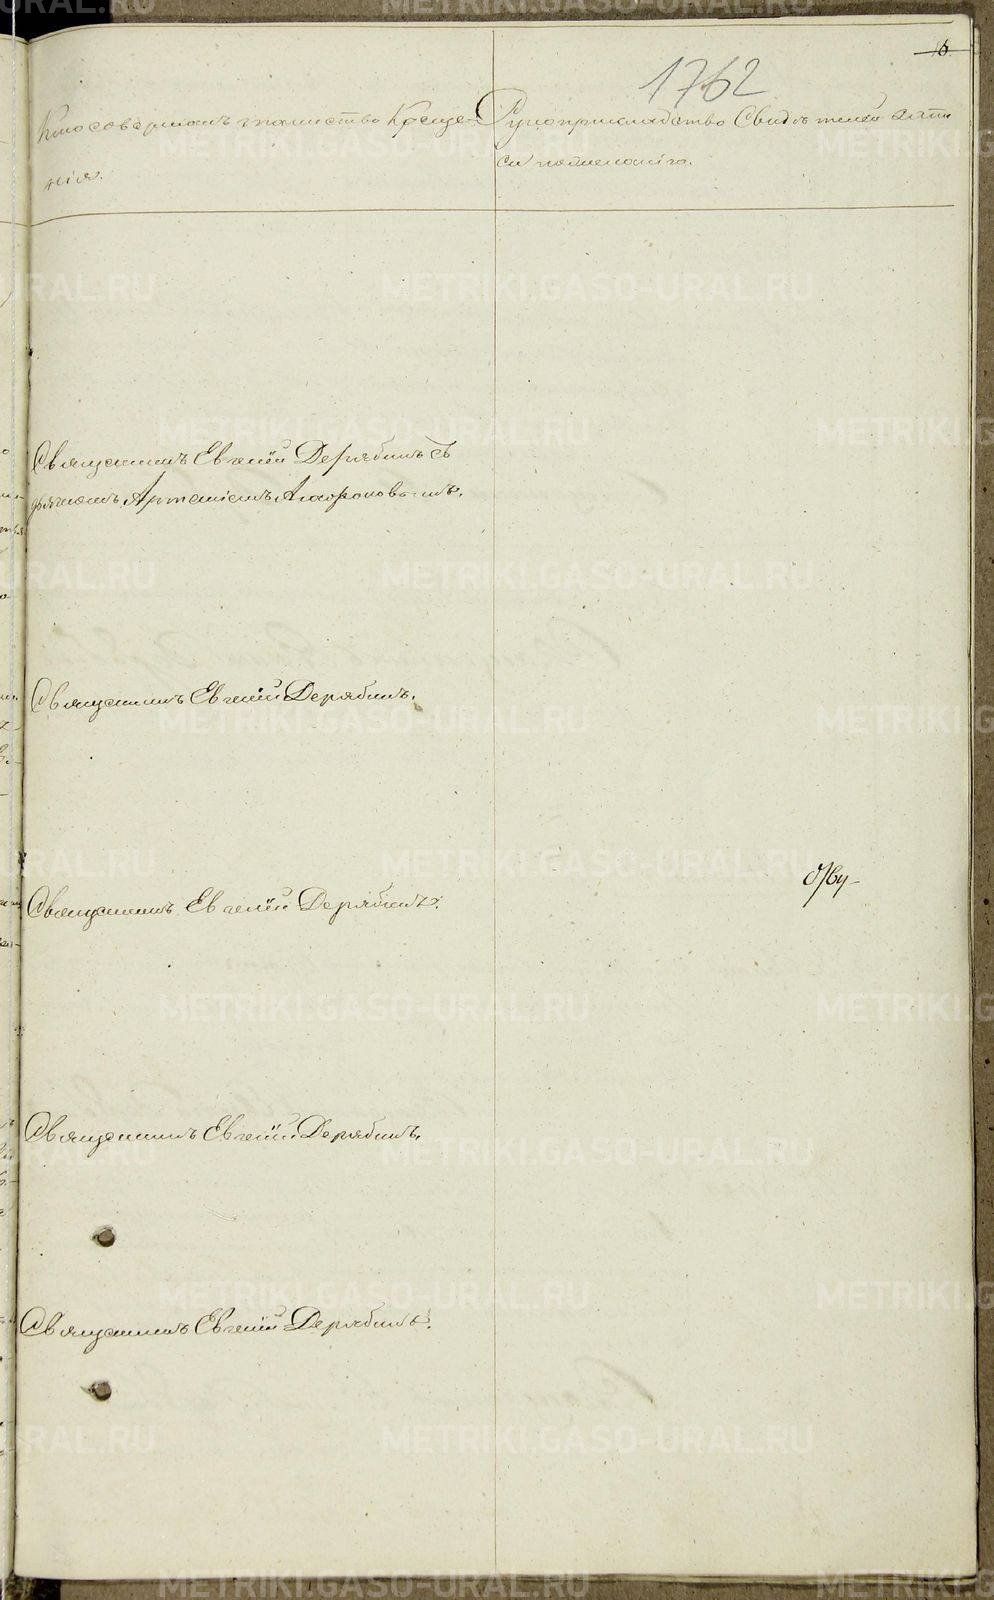 16
1762
Кто совершалъ таинство Креще-
нія.
Рукоприкладство Свидѣтелей запи
си по желанію.
Священникъ Евгеній Дерябинъ съ
дьячкомъ
Священникъ Евгеній Дерябинъ.
Священникъ Евгеній Дерябинъ.
Священникъ Евгеній Дерябинъ.
Священникъ Евгеній Дерябинъ.
METRIKI.GASO-URAL.RU